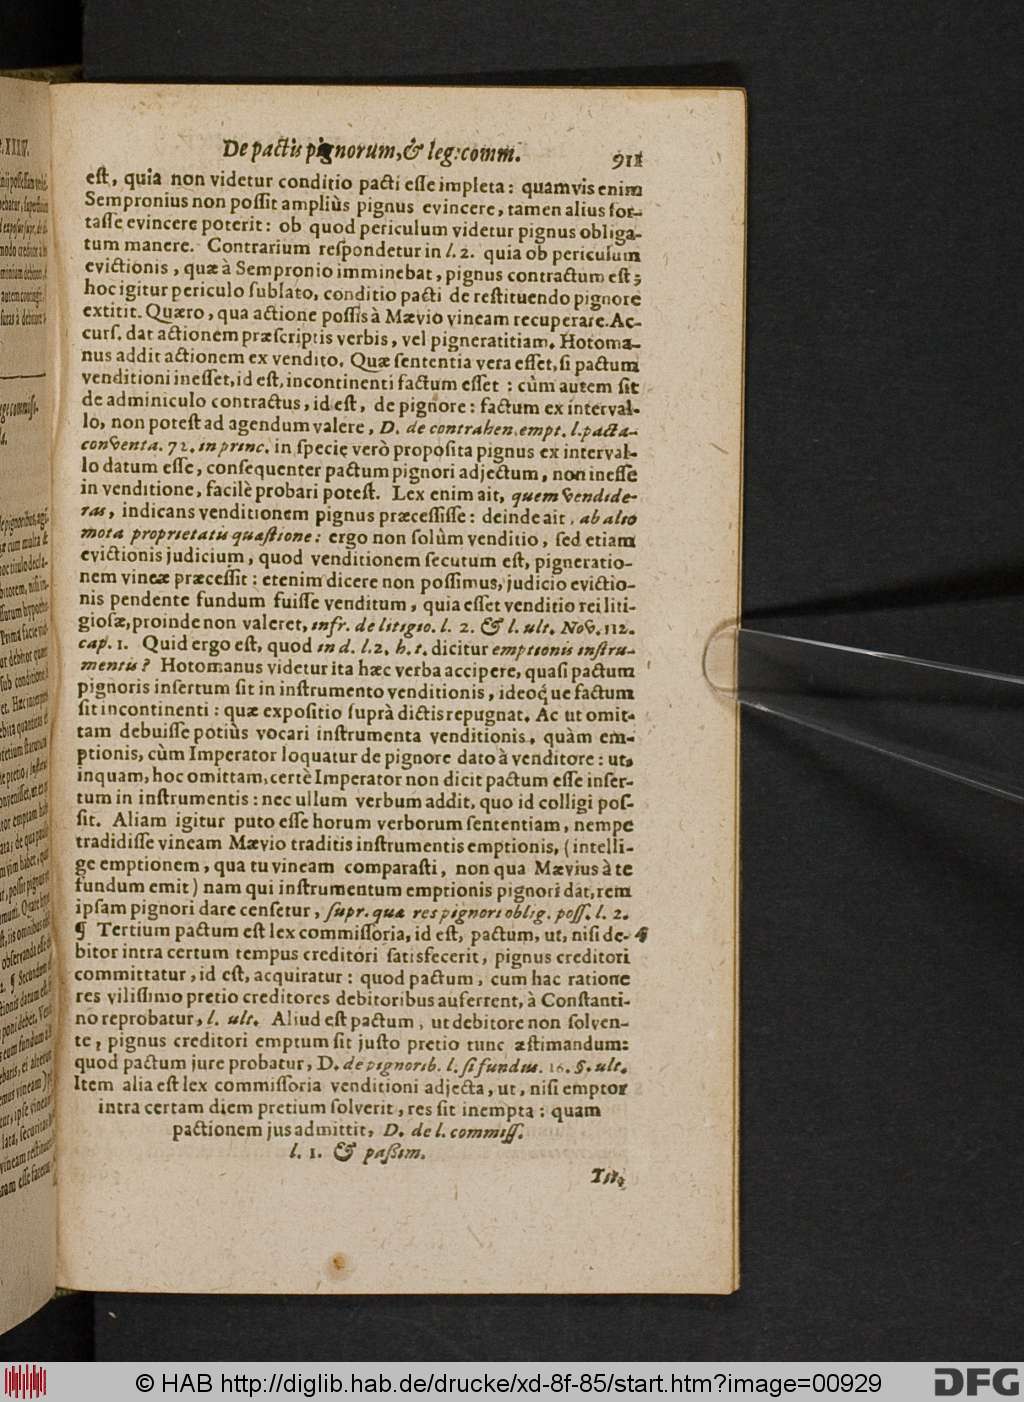 De pactis pignorum, & leg: comm. 911
est, quia non videtur conditio pacti esse impleta: quamvis enim
Sempronius non possit ampliùs pignus evincere, tamen alius for-
tasse evincere poterit: ob quod periculum videtur pignus obliga-
tum manere. Contrarium respondetur in l. 2. quia ob periculum
evictionis, quæ à Sempronio imminebat, pignus contractum est;
hoc igitur periculo sublato, conditio pacti de restituendo pignore
extitit. Quæro, qua actione possis à Mævio vineam recuperare. Ac-
curs. dat actionem præscriptis verbis, vel pigneratitiam. Hotoma-
nus addit actionem ex vendito. Quæ sententia vera esset, si pactum
venditioni inesset, id est, incontinenti factum esset: cùm autem sit
de adminiculo contractus, id est, de pignore: factum ex interval-
lo, non potest ad agendum valere, D. de contrahen. empt. l. pacta-
conventa. 72. in princ. in specie verò proposita pignus ex interval-
lo datum esse, consequenter pactum pignori adjectum, non inesse
in venditione, facilè probari potest. Lex enim ait, quem vendide-
ras, indicans venditionem pignus præcessisse: deinde ait, ab alio
mota proprietatis quæstione: ergo non solùm venditio, sed etiam
evictionis judicium, quod venditionem secutum est, pigneratio-
nem vineæ præcessit: etenim dicere non possimus, judicio evictio-
nis pendente fundum fuisse venditum, quia esset venditio rei liti-
giosæ, proinde non valeret, infr. de litigio. l. 2. & l. ult. Nov. 112.
cap. 1. Quid ergo est, quod in d. l. 2. h. t. dicitur emptionis instru-
mentis? Hotomanus videtur ita hæc verba accipere, quasi pactum
pignoris insertum sit in instrumento venditionis, ideoq́ue factum
sit incontinenti: quæ expositio suprà dictis repugnat. Ac ut omit-
tam debuisse potiùs vocari instrumenta venditionis, quàm em-
ptionis, cùm Imperator loquatur de pignore dato à venditore: ut,
inquam, hoc omittam, certè Imperator non dicit pactum esse inser-
tum in instrumentis: nec ullum verbum addit, quo id colligi pos-
sit. Aliam igitur puto esse horum verborum sententiam, nempe
tradidisse vineam Mævio traditis instrumentis emptionis, (intelli-
ge emptionem, qua tu vineam comparasti, non qua Mævius à te
fundum emit) nam qui instrumentum emptionis pignori dat, rem
ipsam pignori dare censetur, supr. quæ res pignori oblig. poss. l. 2.
¶ Tertium pactum est lex commissoria, id est, pactum, ut, nisi de- ¶
bitor intra certum tempus creditori satisfecerit, pignus creditori
committatur, id est, acquiratur: quod pactum, cum hac ratione
res vilissimo pretio creditores debitoribus auferrent, à Constanti-
no reprobatur, l. ult. Aliud est pactum, ut debitore non solven-
te, pignus creditori emptum sit justo pretio tunc æstimandum:
quod pactum jure probatur, D. de pignorib. l. si fundus. 16. §. ult.
Item alia est lex commissoria venditioni adjecta, ut, nisi emptor
intra certam diem pretium solverit, res sit inempta: quam
pactionem jus admittit, D. de l. commiss.
l. 1. & passim.
Tit.
© HAB http://diglib.hab.de/drucke/xd-8f-85/start.htm?image=00929
DFG